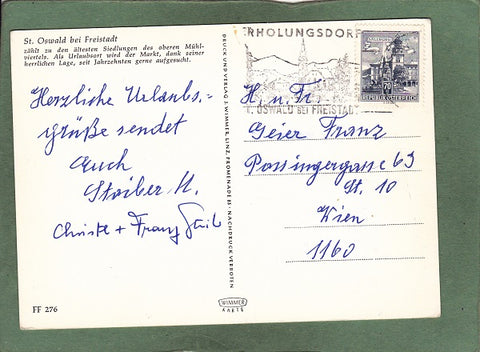 St. Oswald bei Freistadt
zählt zu den ältesten Siedlungen des oberen Mühl-
viertels. Als Urlaubsort wird der Markt, dank seiner
herrlichen Lage, seit Jahrzehnten gerne aufgesucht.
Herzliche Urlaubs.=
grüße sendet
Euch
Stoiber H.
Christl + Franz
FF 276
DRUCK UND VERLAG J. WIMMER, LINZ, PROMENADE 23 - NACHDRUCK VERBOTEN
WIMMER
KARTE
ERHOLUNGSDORF
ST. OSWALD BEI FREISTADT
REPUBLIK ÖSTERREICH
H. u. Fr.
Geier Franz
Possingergasse 63
St. 10
Wien
1160